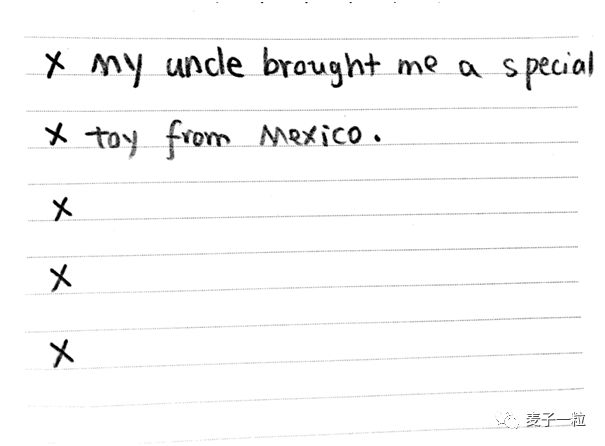 x My uncle brought me a special
x toy from Mexico.
x
x
x
麦子一粒